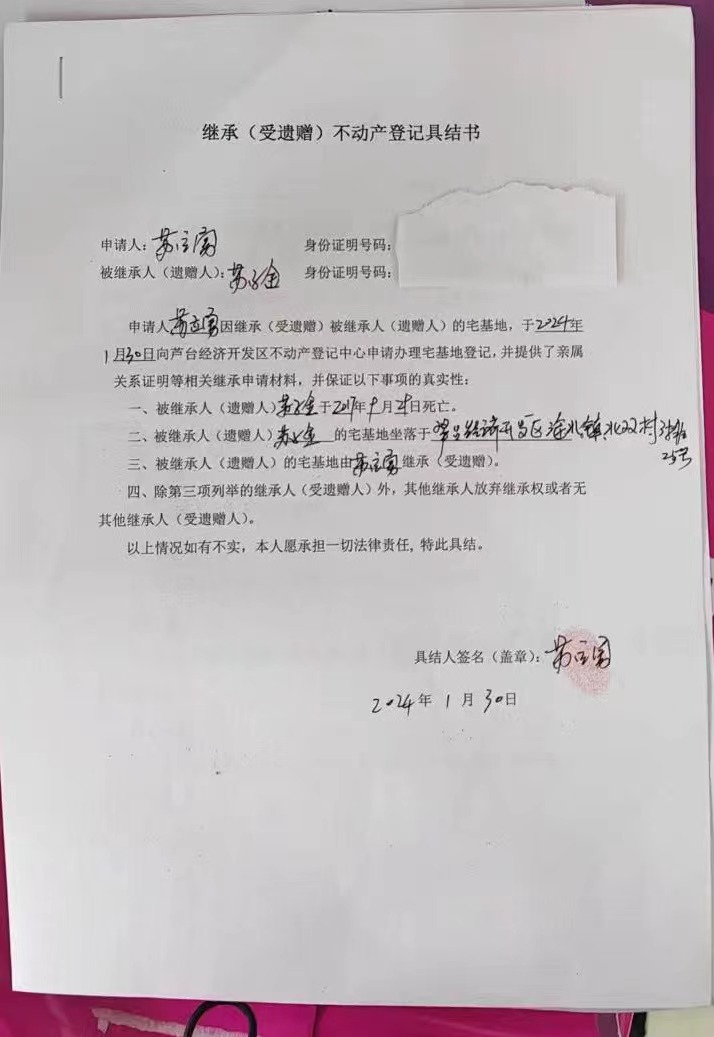 继承（受遗赠）不动产登记具结书
申请人：苏立国 身份证明号码：
被继承人（遗赠人）：苏子金 身份证明号码：
申请人 因继承（受遗赠）被继承人（遗赠人）的宅基地，于2024年
1月30日向芦台经济开发区不动产登记中心申请办理宅基地登记，并提供了亲属
关系证明等相关继承申请材料，并保证以下事项的真实性：
一、被继承人（遗赠人）苏子金于2017年 月 日死亡。
二、被继承人（遗赠人）苏子金的宅基地坐落于 经济开发区 镇 北双村
25号
三、被继承人（遗赠人）的宅基地由苏立国继承（受遗赠）。
四、除第三项列举的继承人（受遗赠人）外，其他继承人放弃继承权或者无
其他继承人（受遗赠人）。
以上情况如有不实，本人愿承担一切法律责任，特此具结。
具结人签名（盖章）：苏立国
2024年1月30日